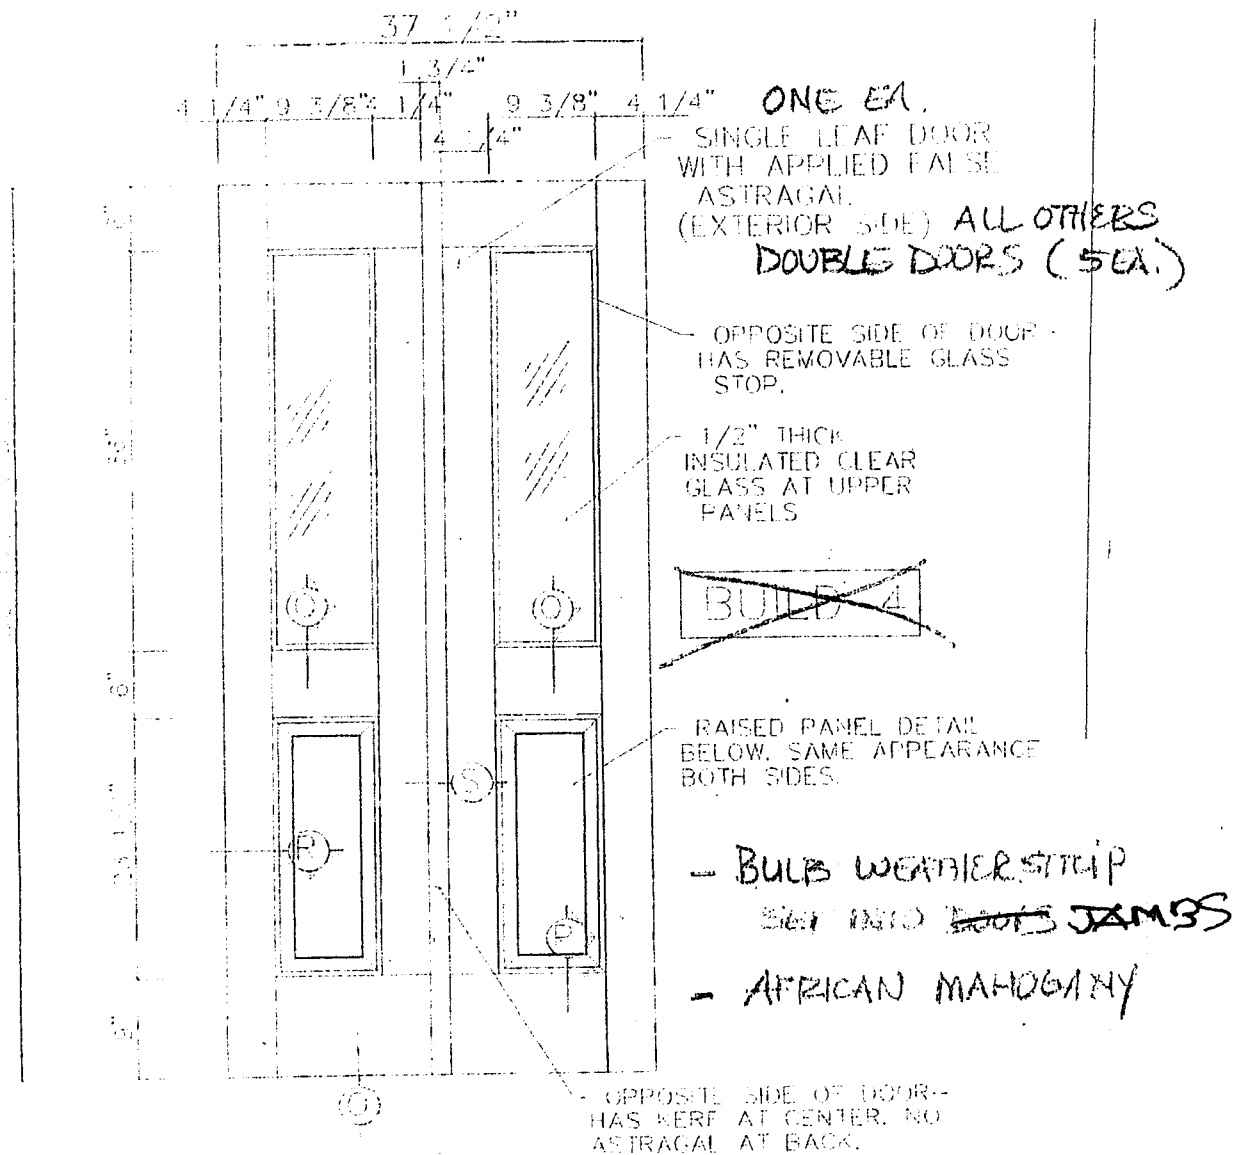 37 1/2"
1 3/4"
4 1/4" 9 3/8" 4 1/4" 9 3/8" 4 1/4"
4 1/4"
ONE EA.
SINGLE LEAF DOOR
WITH APPLIED FALSE
ASTRAGAL
(EXTERIOR SIDE) ALL OTHERS
DOUBLE DOORS (5 EA.)
OPPOSITE SIDE OF DOOR
HAS REMOVABLE GLASS
STOP.
1/2" THICK
INSULATED CLEAR
GLASS AT UPPER
PANELS
O
O
BUILD 4
6"
RAISED PANEL DETAIL
BELOW. SAME APPEARANCE
BOTH SIDES.
S
R
P
- BULB WEATHERSTRIP
SET INTO DOORS JAMBS
- AFRICAN MAHOGANY
OPPOSITE SIDE OF DOOR
HAS KERF AT CENTER. NO
ASTRAGAL AT BACK.